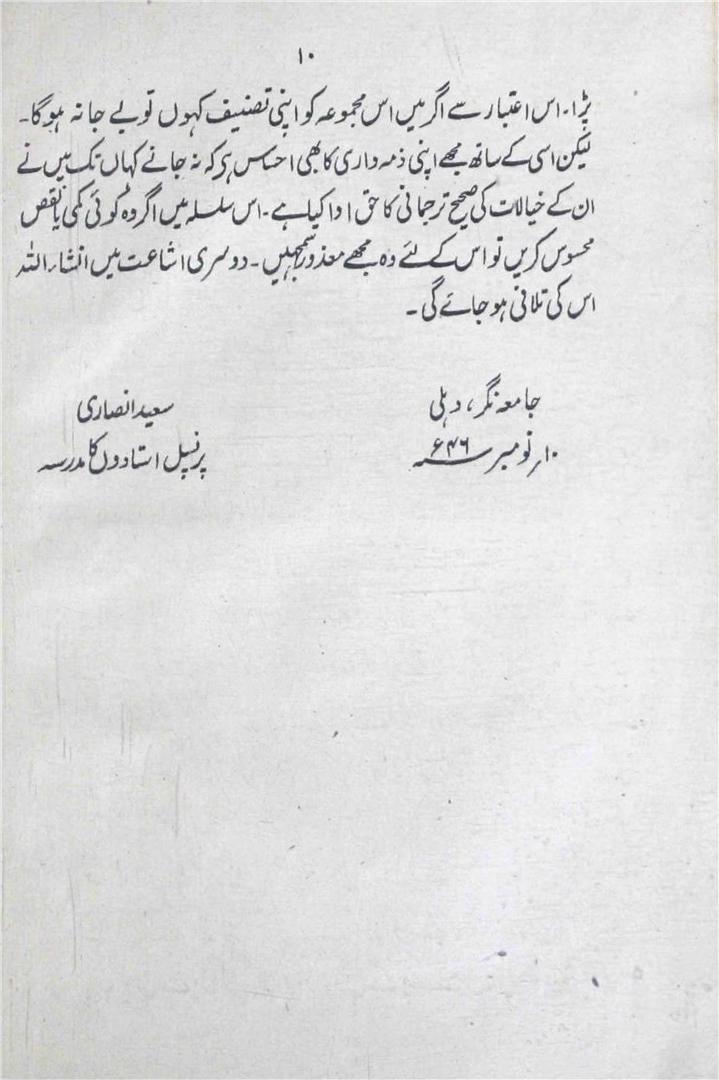 ۱۰
پڑا۔ اس اعتبار سے اگر میں اس مجموعہ کو اپنی تصنیف کہوں تو بے جا نہ ہوگا۔
لیکن اسی کے ساتھ مجھے اپنی ذمہ داری کا بھی احساس ہے کہ نہ جانے کہاں تک میں نے
ان کے خیالات کی صحیح ترجمانی کا حق ادا کیا ہے۔ اس سلسلہ میں اگر وہ کوئی کمی یا نقص
محسوس کریں تو اس کے لئے وہ مجھے معذور سمجہیں۔ دوسری اشاعت میں انشاء اللہ
اس کی تلافی ہو جائے گی۔
جامعہ نگر، دہلی
سعید انصاری
۱۰؍ نومبر ۴۶ء
پرنسپل استادوں کا مدرسہ